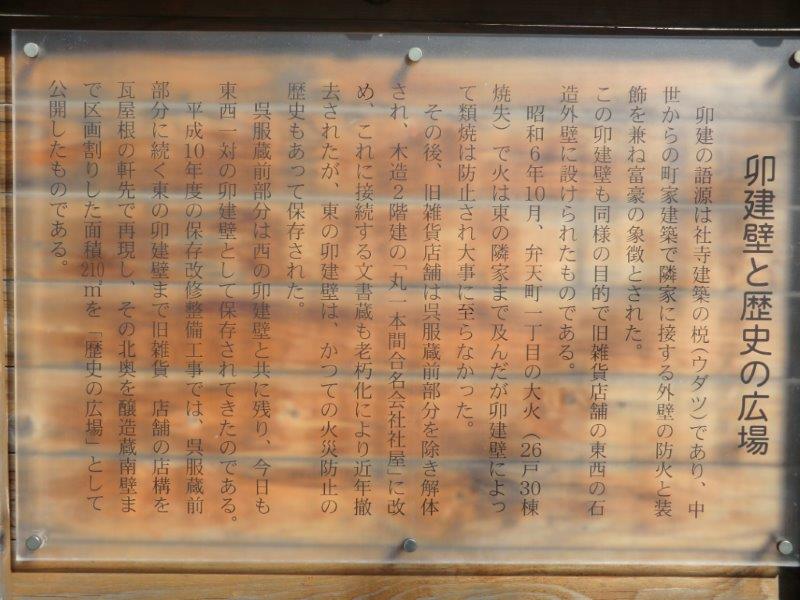 卯建壁と歴史の広場
卯建の語源は社寺建築の棁(ウダツ)であり、中
世からの町家建築で隣家に接する外壁の防火と装
飾を兼ね富豪の象徴とされた。
この卯建壁も同様の目的で旧雑貨店舗の東西の石
造外壁に設けられたものである。
昭和6年10月、弁天町一丁目の大火(26戸30棟
焼失)で火は東の隣家まで及んだが卯建壁によっ
て類焼は防止され大事に至らなかった。
その後、旧雑貨店舗は呉服蔵前部分を除き解体
され、木造2階建の「丸一本間合名会社社屋」に改
め、これに接続する文書蔵も老朽化により近年撤
去されたが、東の卯建壁は、かつての火災防止の
歴史もあって保存された。
呉服蔵前部分は西の卯建壁と共に残り、今日も
東西一対の卯建壁として保存されてきたのである。
平成10年度の保存改修整備工事では、呉服蔵前
部分に続く東の卯建壁まで旧雑貨 店舗の店構を
瓦屋根の軒先で再現し、その北奥を醸造蔵南壁ま
で区画割りした面積210㎡を「歴史の広場」として
公開したものである。